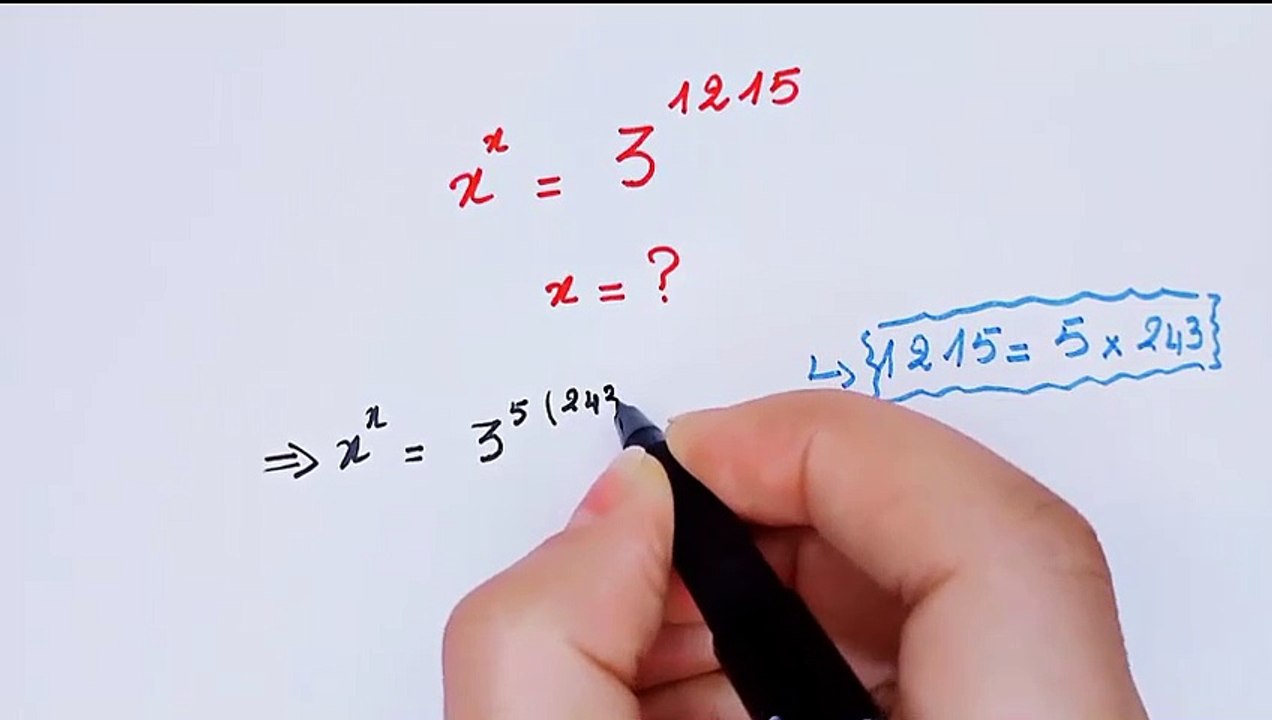 xˣ = 3¹²¹⁵
x = ?
↳ {1215 = 5 × 243}
⇒ xˣ = 3⁵⁽²⁴³